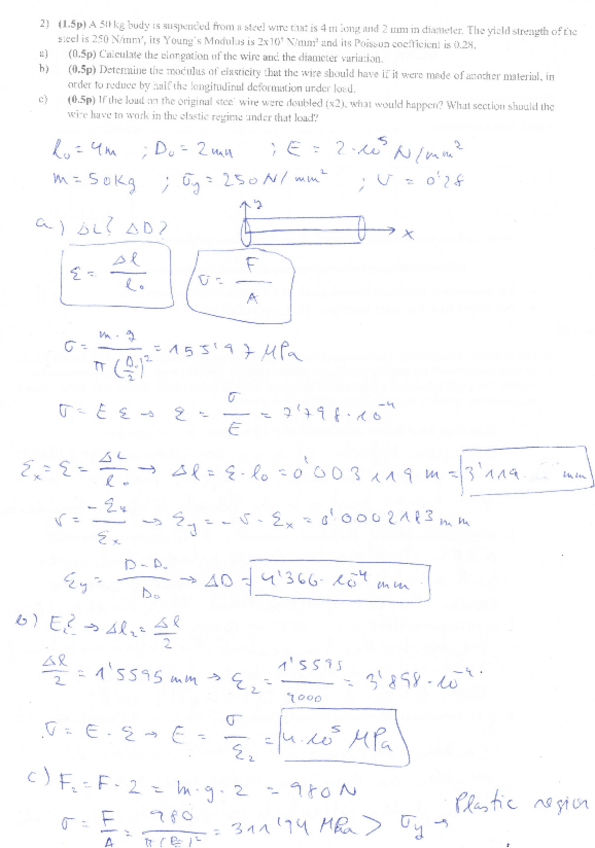 2) (1.5p) A 50 kg body is suspended from a steel wire that is 4 m long and 2 mm in diameter. The yield strength of the
steel is 250 N/mm², its Young's Modulus is 2x10⁵ N/mm² and its Poisson coefficient is 0.28.
a) (0.5p) Calculate the elongation of the wire and the diameter variation.
b) (0.5p) Determine the modulus of elasticity that the wire should have if it were made of another material, in
order to reduce by half the longitudinal deformation under load.
c) (0.5p) If the load on the original steel wire were doubled (x2), what would happen? What section should the
wire have to work in the elastic regime under that load?
l₀ = 4m ; D₀ = 2mm ; E = 2·10⁵ N/mm²
m = 50Kg ; σy = 250 N/mm² ; ν = 0'28
a) ΔL? ΔD?
z
x
ε = Δl / l₀
σ = F / A
σ = m·g / π (D₀/2)² = 155'97 MPa
σ = E ε → ε = σ / E = 7'798·10⁻⁴
εx = ε = ΔL / l₀ → Δl = ε·l₀ = 0'003119 m = 3'119 mm
ν = -εy / εx → εy = -ν·εx = 0'0002183 mm
εy = D-D₀ / D₀ → ΔD = 4'366·10⁻⁴ mm
b) E? → Δl₂ = Δl / 2
Δl / 2 = 1'5595 mm → ε₂ = 1'5595 / 4000 = 3'898·10⁻⁴
σ = E·ε → E = σ / ε₂ = 4·10⁵ MPa
c) F₂ = F·2 = m·g·2 = 980N
σ = F / A = 980 / π( )² = 311'94 MPa > σy → Plastic region